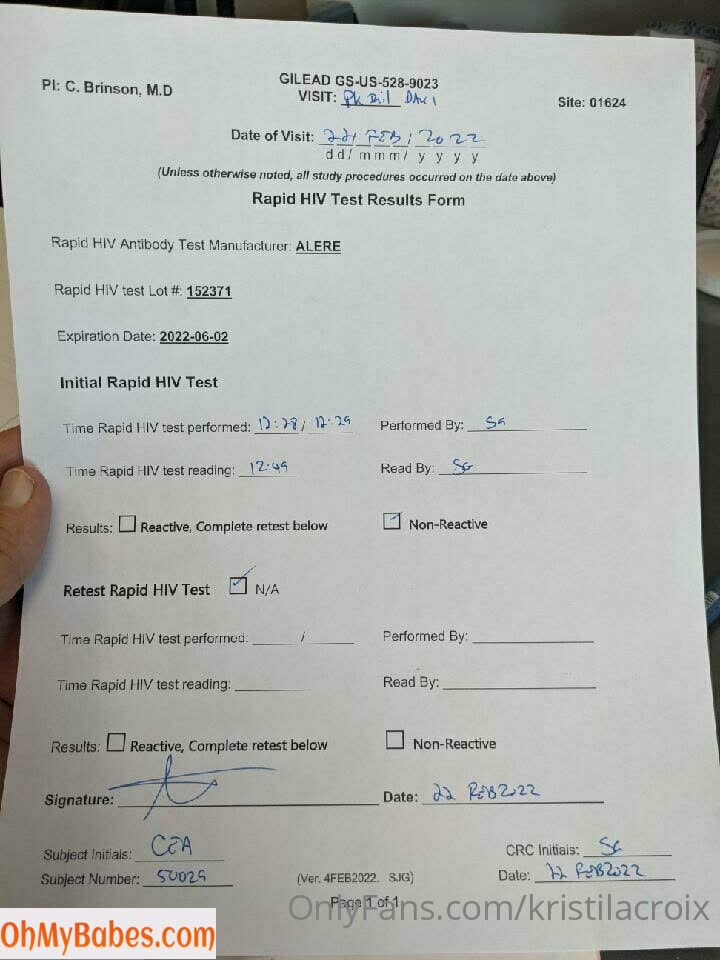 PI: C. Brinson, M.D
GILEAD GS-US-528-9023
VISIT: DAY 1
Site: 01624
Date of Visit: 22/ FEB / 2022
dd/ mmm/ y y y y
(Unless otherwise noted, all study procedures occurred on the date above)
Rapid HIV Test Results Form
Rapid HIV Antibody Test Manufacturer: ALERE
Rapid HIV test Lot #: 152371
Expiration Date: 2022-06-02
Initial Rapid HIV Test
Time Rapid HIV test performed: 12:28 / 12:29 Performed By: SG
Time Rapid HIV test reading: 12:49 Read By: SG
Results: Reactive, Complete retest below Non-Reactive
Retest Rapid HIV Test N/A
Time Rapid HIV test performed: / Performed By:
Time Rapid HIV test reading: Read By:
Results: Reactive, Complete retest below Non-Reactive
Signature: Date: 22 FEB2022
Subject Initials: CEA CRC Initials: SG
Subject Number: 50029 (Ver. 4FEB2022. SJG) Date: 22 FEB2022
Page 1 of 1
OnlyFans.com/kristilacroix
OhMyBabes.com